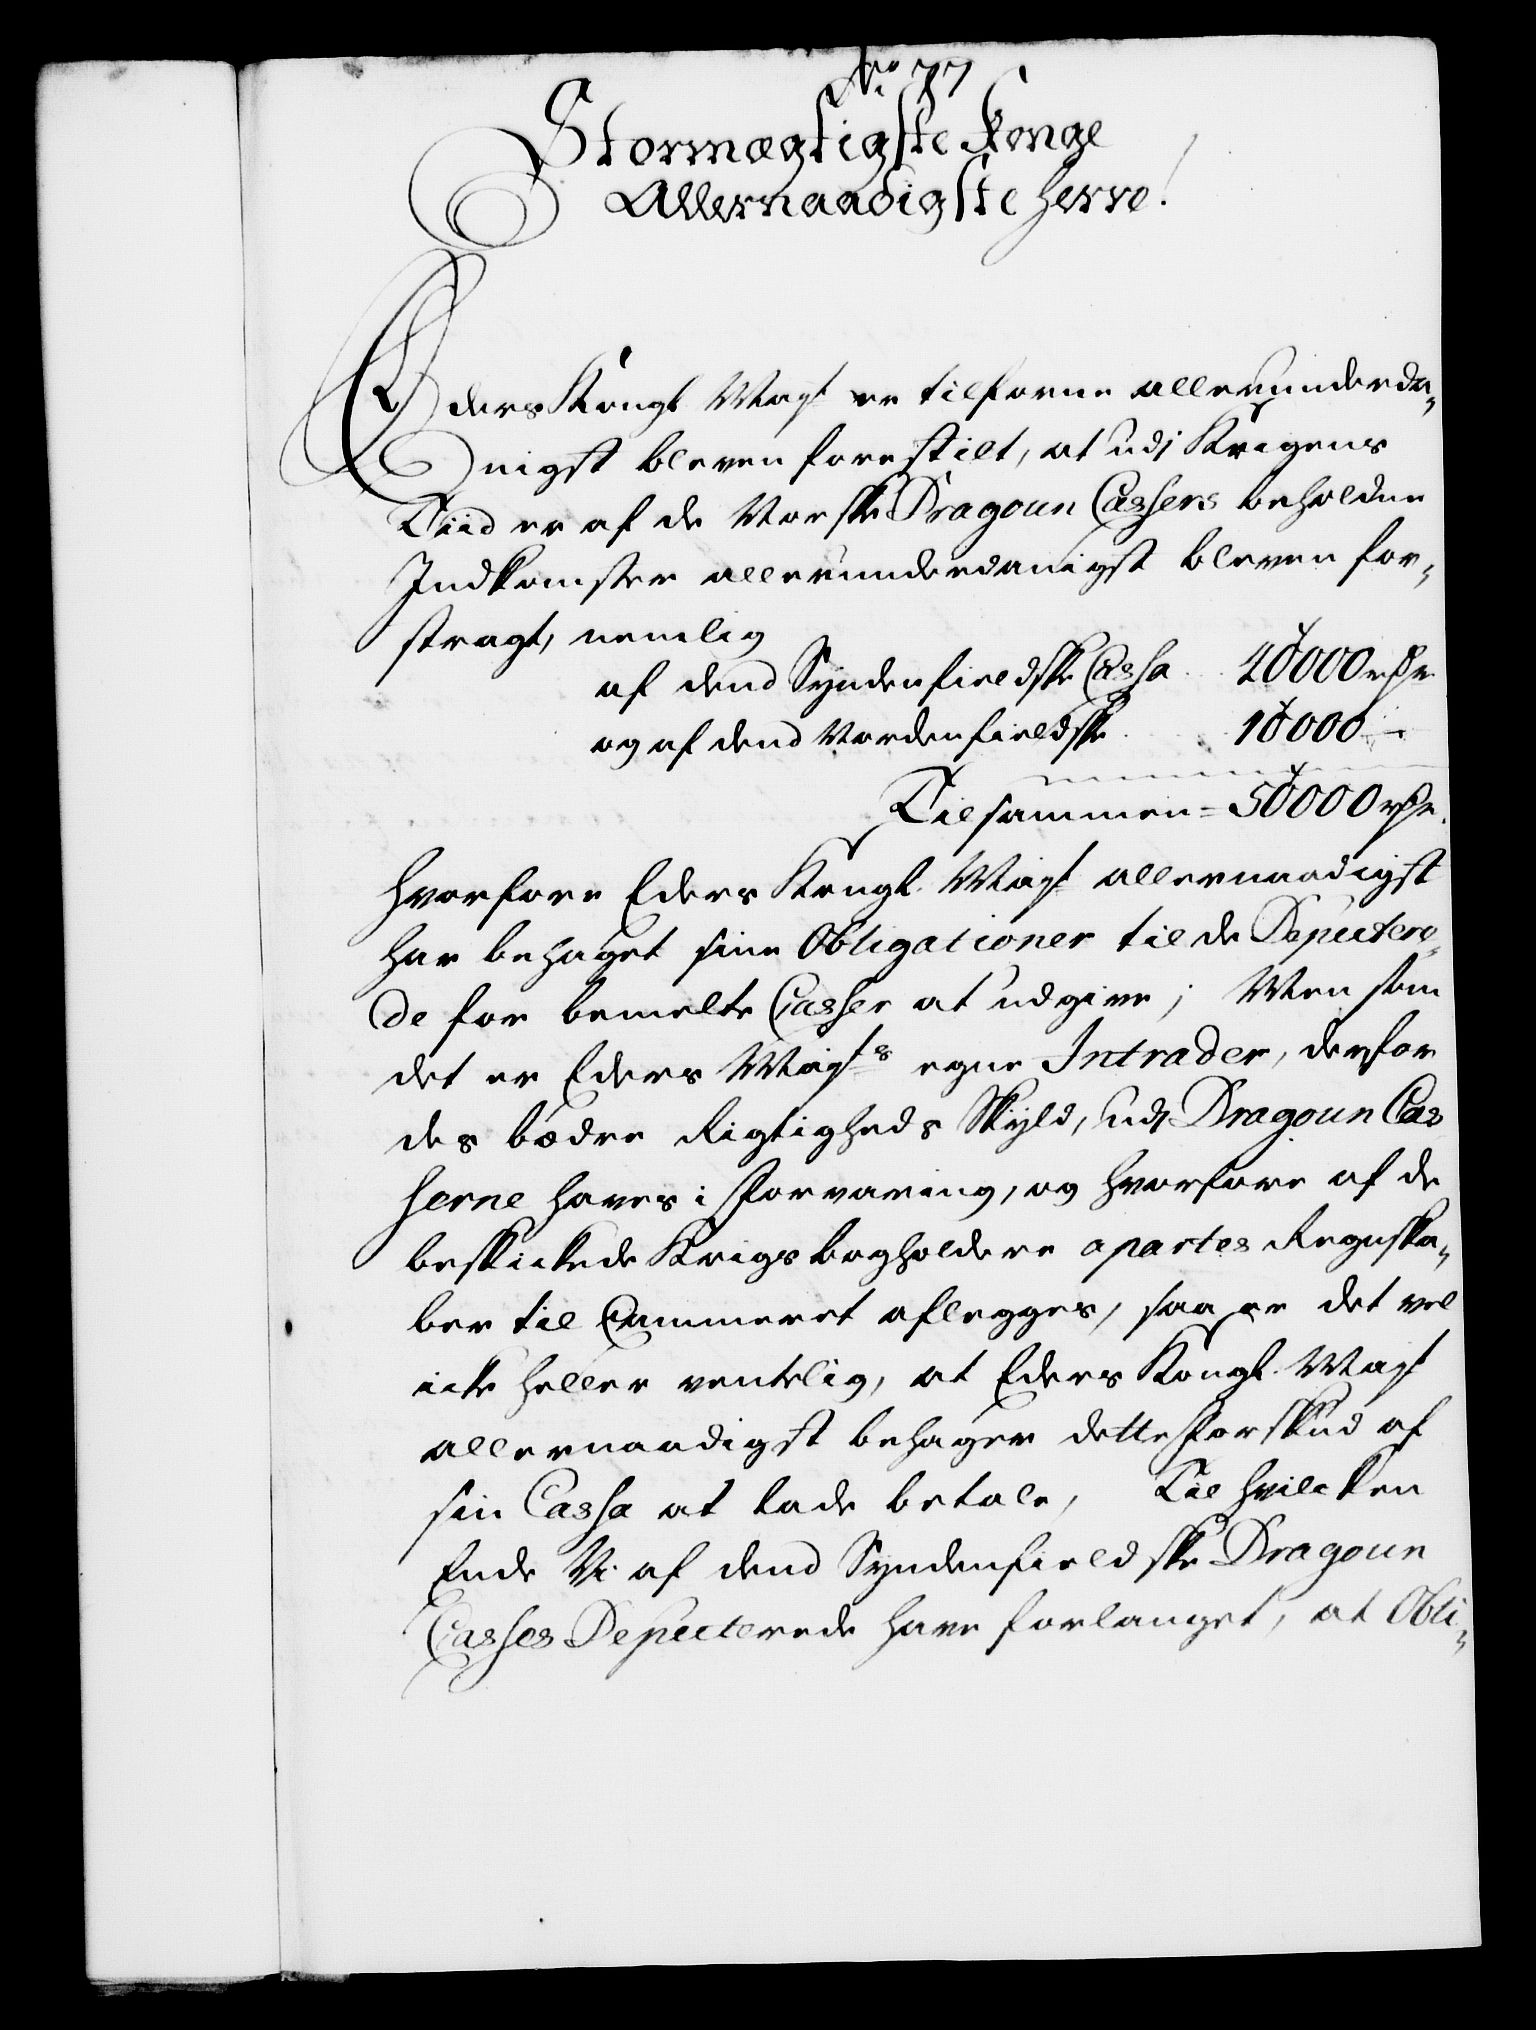 No. 77
Stormægtigste Konge
Allernaadigste Herre!
Eders Kongl. Mayt er tilforne allerunderda-
nigst bleven forestilt, at udj Krigens
Tiid er af de Norske Dragoun Cassers beholdne
Indkomster allerunderdanigst bleven for-
stragt, nemlig
af dend Syndenfieldske Cassa 40000 rdr
og af dend Nordenfieldske 10000 –
Tilsammen = 50000 rdr.
hvorfore Eders Kongl. Mayt allernaadigst
har behaget sine Obligationer til de Deputere-
de for bemelte Casser at udgive; Men som
det er Eders Mayts egne Intrader, der for
des bedre Rigtigheds Skyld, udj Dragoun Cas
serne haves i Forvaring, og hvorfore af de
beskickede Krigs bogholdere apartes Regnska-
ber til Cammeret aflegges, saa er det vel
icke heller ventelig, at Eders Kongl. Mayt
allernaadigst behager dette Forskud af
sin Cassa at lade betale, Til hvilcken
Ende Vi af dend Syndenfieldske Dragoun
Casses Deputerede have forlanget, at Obli-